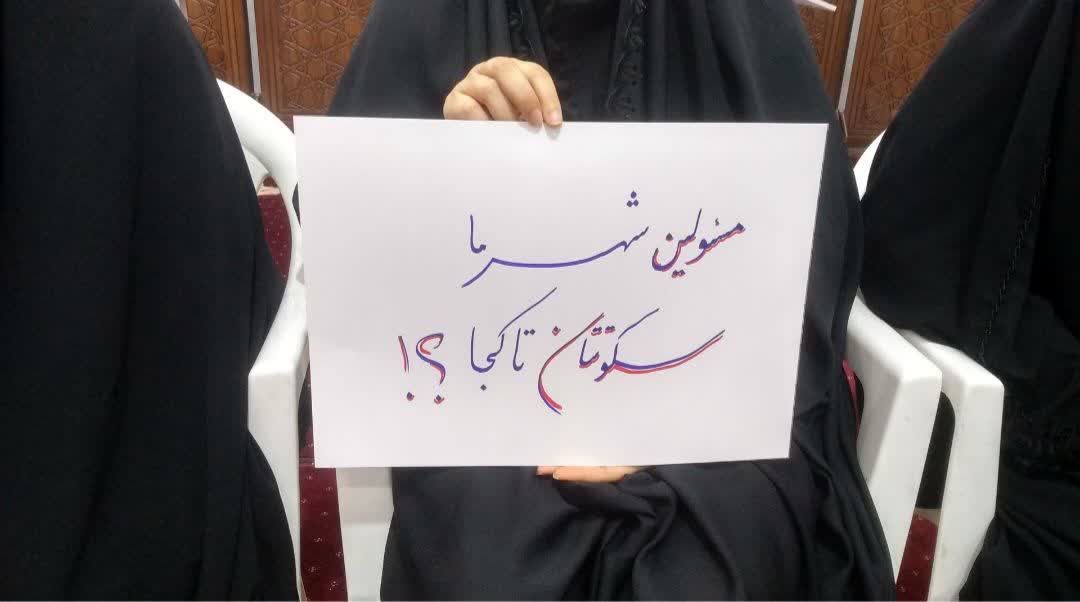 مسئولین شهر ما
سکوتتان تا کجا ؟!